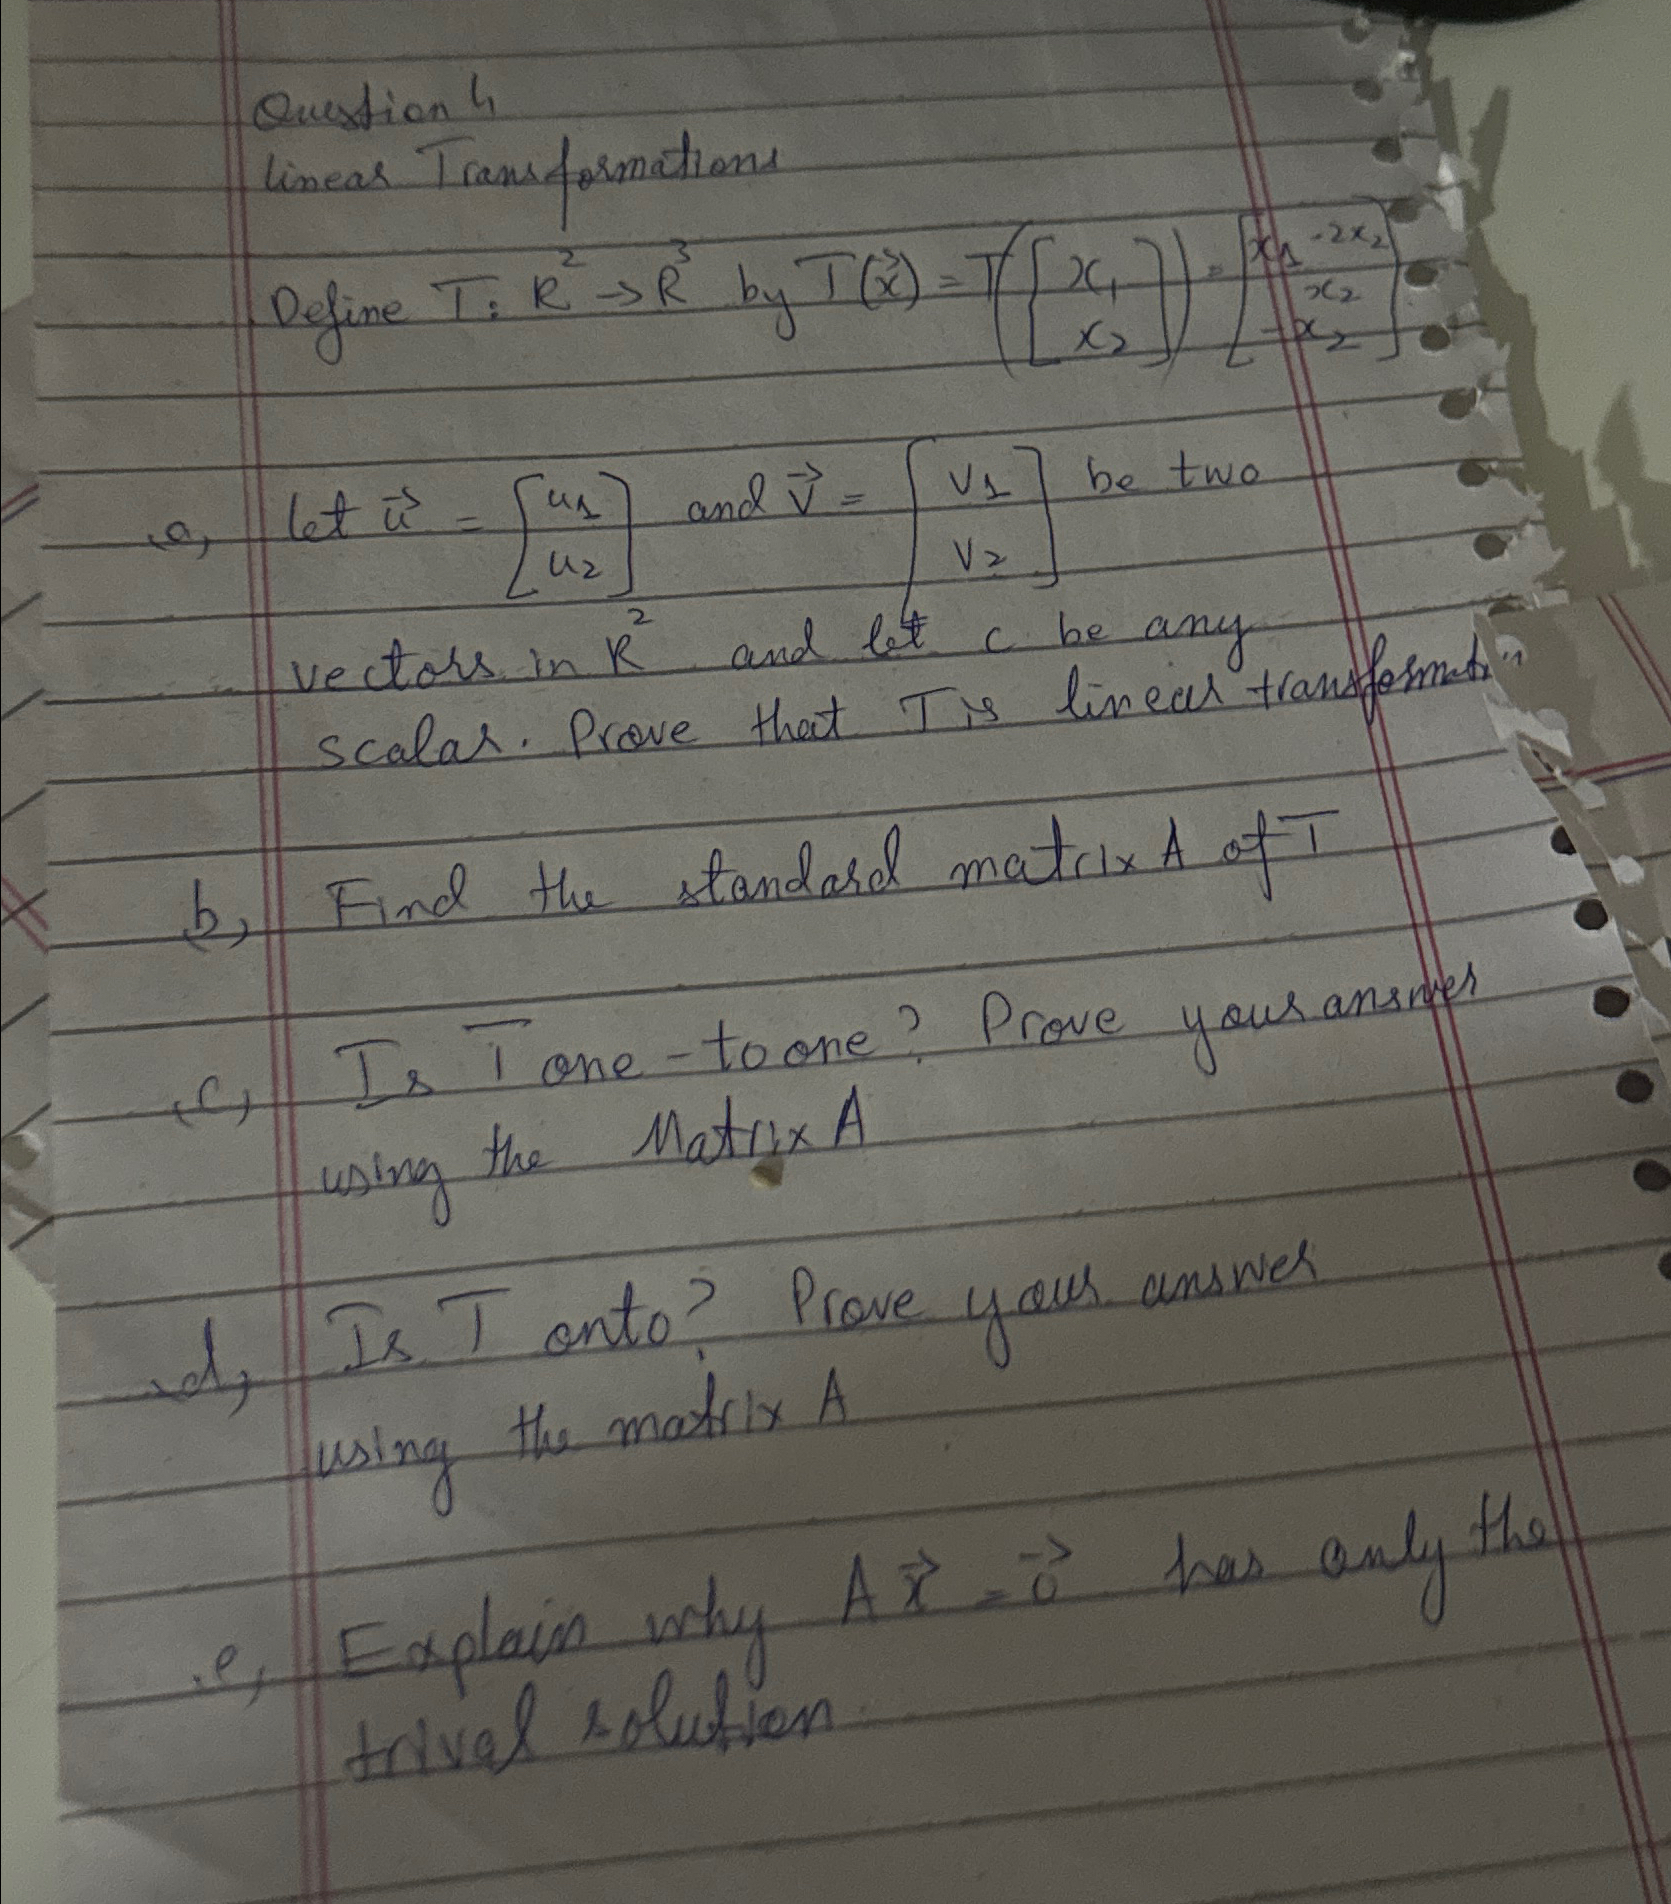 Question 4
linear Transformations
Define T: R² → R³ by T(x⃗) = T([x₁ x₂]) = [x₁ - 2x₂ x₂ -x₂]
a, let u⃗ = [u₁ u₂] and v⃗ = [v₁ v₂] be two
vectors in R² and let c be any
scalar. Prove that T is linear transformation
b, Find the standard matrix A of T
c, Is T one-to one? Prove your answer
using the Matrix A
d, Is T onto? Prove your answer
using the matrix A
e, Explain why Ax⃗ = 0⃗ has only the
trival solution